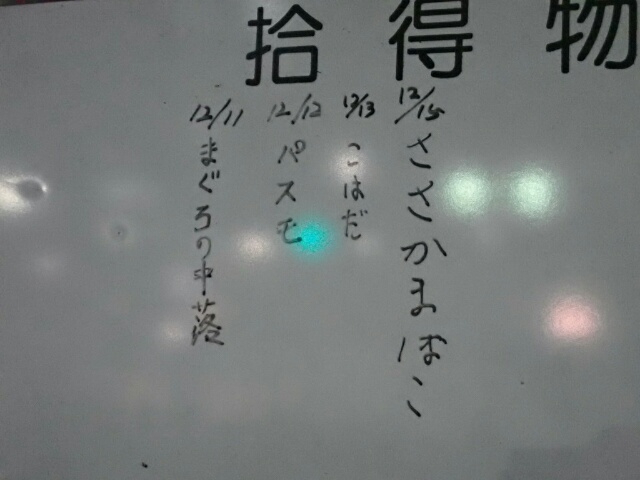 拾得物
12/15 ささかまぼこ
12/13 こはだ
12/12 パスモ
12/11 まぐろの中落